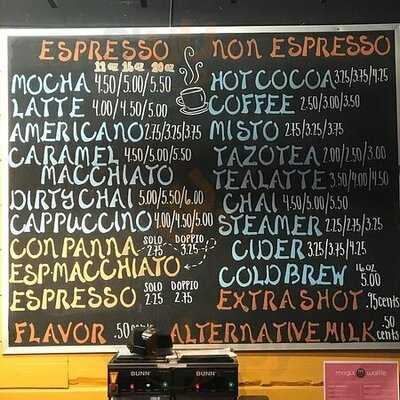 ESPRESSO
12 oz 16 oz 20 oz
MOCHA 4.50/5.00/5.50
LATTE 4.00/4.50/5.00
AMERICANO 2.75/3.25/3.75
CARAMEL 4.50/5.00/5.50
MACCHIATO
DIRTY CHAI 5.00/5.50/6.00
CAPPUCCINO 4.00/4.50/5.00
SOLO DOPPIO
CON PANNA 2.75 3.25
ESP. MACCHIATO
SOLO DOPPIO
ESPRESSO 2.25 2.75
FLAVOR .50 cents
NON ESPRESSO
HOT COCOA 3.25/3.75/4.25
COFFEE 2.50/3.00/3.50
MISTO 2.75/3.25/3.75
TAZO TEA 2.00/2.50/3.00
TEA LATTE 3.50/4.00/4.50
CHAI 4.50/5.00/5.50
STEAMER 2.25/2.75/3.25
CIDER 3.25/3.75/4.25
COLD BREW 16oz 5.00
EXTRA SHOT .75 cents
ALTERNATIVE MILK .50 cents
BUNN BUNN